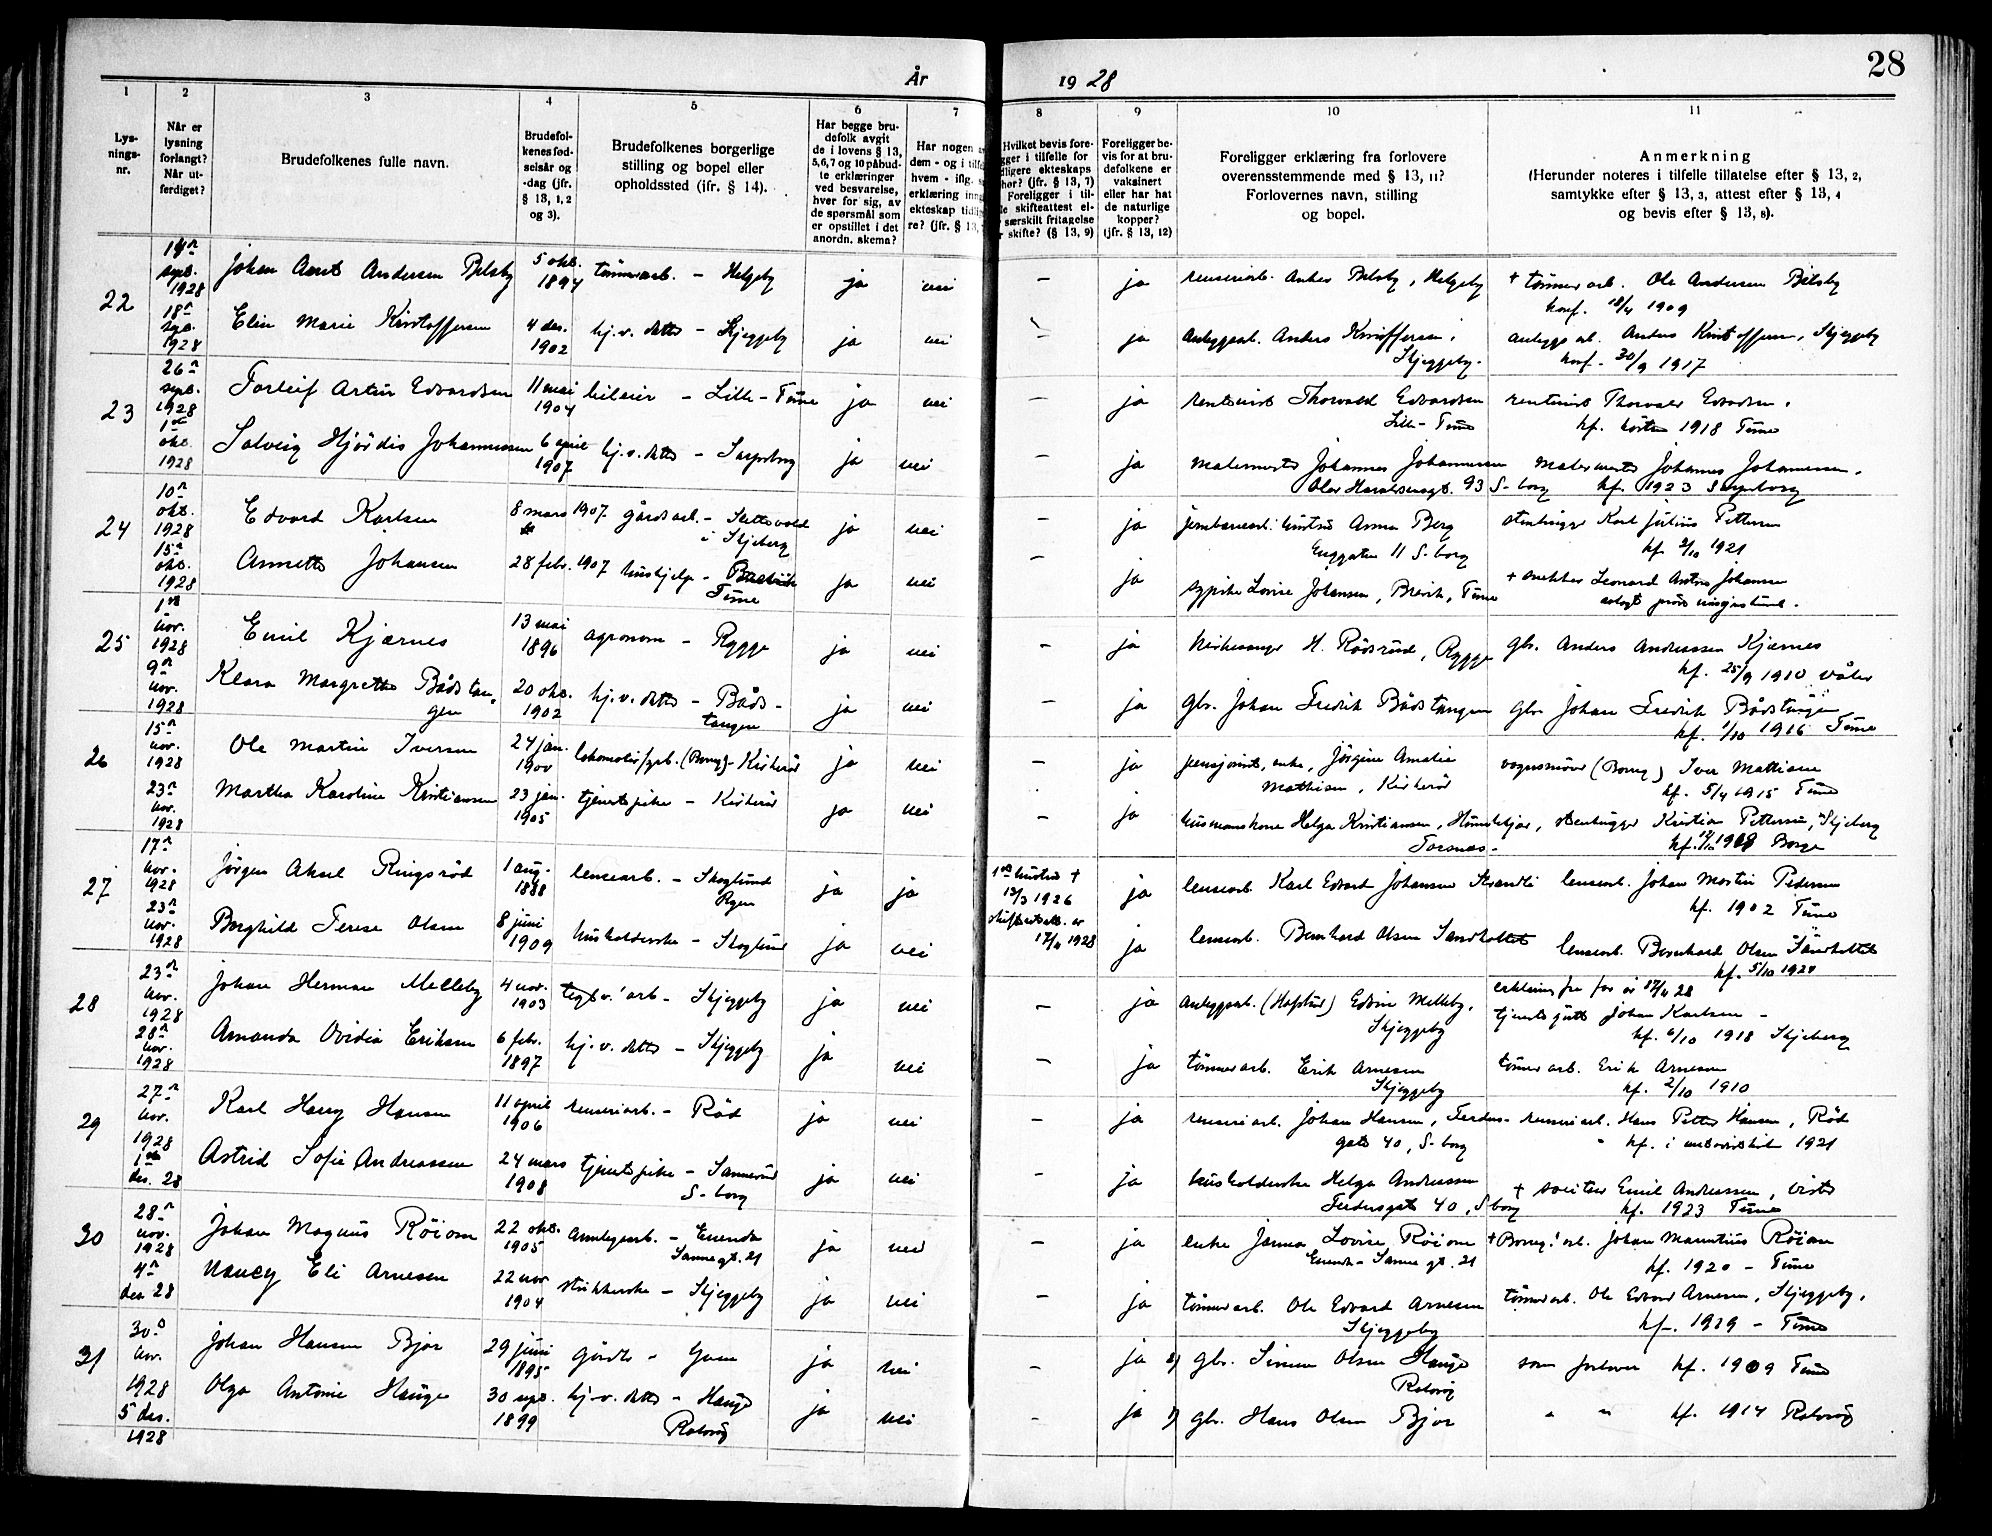 28
År 1928
1 2 3 4 5 6 7 8 9 10 11
Lysningsnr.
Når er lysning forlangt? Når utferdiget?
Brudefolkenes fulle navn.
Brudefolkenes fødselsår og -dag (jfr. § 13, 1, 2 og 3).
Brudefolkenes borgerlige stilling og bopel eller opholdssted (ifr. § 14).
Har begge brudefolk avgit de i lovens § 13, 5, 6, 7 og 10 påbudte erklæringer ved besvarelse, hver for sig, av de spørsmål som er opstillet i det anordn. skema?
Har nogen
dem - og i tilf
hvem - iflg.
erklæring inn
ekteskap tidli
re? (jfr. § 13,
Hvilket bevis fore-
gger i tilfelle for
dligere ekteskaps
hør? (jfr. § 13, 7)
Foreligger i til-
le skifteattest el-
særskilt fritagelse
skifte? (§ 13, 9)
Foreligger bevis for at brudefolkene er vaksinert eller har hat de naturlige kopper? (jfr. § 13, 12)
Foreligger erklæring fra forlovere overensstemmende med § 13, 11? Forlovernes navn, stilling og bopel.
Anmerkning
(Herunder noteres i tilfelle tillatelse efter § 13, 2, samtykke efter § 13, 3, attest efter § 13, 4 og bevis efter § 13, 8).
22 14n sept. 1928 Johan Arnt Andersen Bilsby 5 okt. 1894 tømmerarb. - Helgeby ja nei - ja renseriarb. Anders Bilsby, Helgeby + tømmerarb. Ole Andersen Bilsby
konf. 18/4 1909
18n sept. 1928 Elin Marie Kristoffersen 4 des. 1902 hj.v. dette - Skjeggeby ja nei - ja anleggsarb. Anders Kristoffersen, Skjeggeby. anleggsarb. Anders Kristoffersen, Skjeggeby
konf. 30/9 1917
23 26n sept. 1928 Torleif Artur Edvardsen 11 mai 1904 bileier - Lille-Tune ja nei - ja rentenist Thorvald Edvardsen Lille-Tune rentenist Thorvald Edvardsen.
kf. høsten 1918 Tune
1ste okt. 1928 Solveig Hjørdis Johannessen 6 april 1907 hj.v. dette - Sarpsborg ja nei - ja malermester Johannes Johannessen Olav Haraldsonsgt. 93 S-borg malermester Johannes Johannessen.
kf. 1923 Sarpsborg
24 10n okt. 1928 Edvard Karlsen 8 mars 1907 gårdsarb. - i Skjeberg ja nei - ja hustru Anna Berg Enggaten 11 S-borg stenhugger Karl Julius Pettersen
kf. 2/10 1921
15n okt. 1928 Annette Johansen 28 febr. 1907 hushjelp - Tune ja nei - ja sypike Lovise Johansen, Brevik, Tune + snekker Leonard Anton Johansen
avlagt prøve
25 1ste nov. 1928 Emil Kjærnes 13 mai 1896 agronom - Rygge ja nei - ja kirkesanger H. Rødsrud, Rygge gbr. Anders Andreassen Kjærnes
kf. 25/9 1910 Våler
9n nov. 1928 Klara Margrethe Bådstangen 20 okt. 1902 hj.v. dette - Bådstangen ja nei - ja gbr. Johan Fredrik Bådstangen gbr Johan Fredrik Bådstangen
kf. 1/10 1916 Tune
26 15n nov. 1928 Ole Martin Iversen 24 jan. 1900 lokomotivfyrb. (Borreg) - Kirkerød ja nei - ja pensjonist, enke, Jørgine Amalie Mathisen, Kirkerød vognsmører (Borreg) Iver Mattisen
kf. 5/4 1915 Tune
23n nov. 1928 Martha Karoline Kristiansen 23 jan. 1905 tjenestepike - Kirkerød ja nei - ja husmannskone Helga Kristiansen, Torsnes. stenhugger Kristian Pettersen, Skjeberg
kf. 1918 Borge
27 17n nov. 1928 Jørgen Aksel Ringsrød 1 aug. 1888 lensearb. - Skoglund ja ja 1ste hustru + 12/3 1926 skifteattest er 17/11 1928 ja lensearb Karl Edvard Johansen Strandli lensearb. Johan Martin Pedersen
kf. 1902 Tune
23n nov. 1928 Borghild Terese Olsen 8 juni 1909 husholderske - Skoglund ja nei ja lensearb. Bernhard Olsen Sandholtet lensearb. Bernhard Olsen Sandholtet
kf. 5/10 1924
28 23n nov. 1928 Johan Herman Melleby 4 nov. 1903 teglv.arb - Skjeggeby ja nei - ja anleggsarb. (Hafslund) Edvin Melleby, Skjeggeby erklæring fra far av 17/11 28
tjenestegutt Johan Karlsen -
kf. 6/10 1918 Skjeberg
28n nov. 1928 Amanda Ovidia Eriksen 6 febr. 1897 hj.v. dette - Skjeggeby ja nei - ja tømmerarb. Erik Arnesen Skjeggeby tømmerarb. Erik Arnesen
kf. 2/10 1910
29 27n nov. 1928 Karl Harry Hansen 11 april 1906 renseriarb. - Rød ja nei - ja renseriarb. Johan Hansen, Ferdersgate 40, S-borg renseriarb. Hans Petter Hansen, Rød
kf. i metodistkirken 1921
1ste des. 28 Astrid Sofie Andreassen 24 mars 1908 tjenestepike - Sannesund S-borg ja nei - ja husholderske Helga Andreassen Ferdersgate 40, S-borg + Emil Andreassen,
kf. 1923 Tune
30 28n nov. 1928 Johan Magnus Röiom 22 okt. 1905 anleggsarb. - Sannegt. 21 ja nei - ja enke Janna Lovise Röiom Sannegt. 21 + Borreg.'arb. Johan Mauritius Röiom
kf. 1920 - Tune
4n des 28 Nancy Eli Arnesen 22 nov 1904 strikkerske - Skjeggeby ja nei - ja tømmerarb. Ole Edvard Arnesen Skjeggeby tømmerarb. Ole Edvard Arnesen, Skjeggeby,
kf. 1919 - Tune
31 30n nov. 1928 Johan Hansen Bjor 29 juni 1895 - ja nei - ja 2) gbr. Simen Olsen Hauge Rolvsøy som forlover kf. 1909 Tune
5 des. 1928 Olga Antonie Hauge 30 sept. 1899 hj.v. dette - Hauge Rolvsøy ja nei - ja 1) gbr. Hans Olsen Bjor " " kf. 1914 Rolvsøy